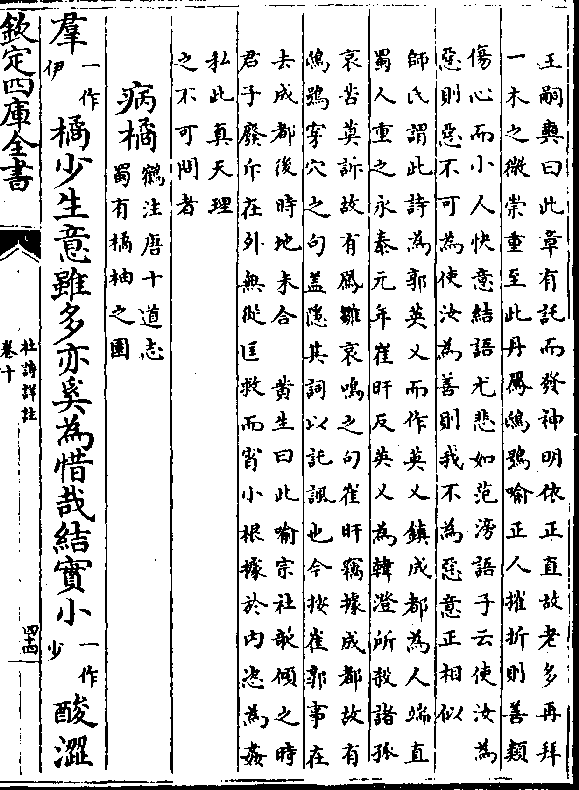 王嗣奭曰此章有託而發神明依正直故老多再拜
一木之微崇重至此丹鳳鴟鴞喻正人摧折則善類
傷心而小人快意結語尤悲如范滂語子云使汝為
惡則惡不可為使汝為善則我不為惡意正相似
師氏謂此詩為郭英乂而作英乂鎮成都為人端直
蜀人重之永泰元年崔旰反英乂為韓澄所殺諸孫
哀苦莫訴故有鳳雛哀鳴之句崔旰竊據成都故有
鴟鴞穿穴之句蓋隱其詞以託諷也今按崔郭事在
去成都後時地未合 黄生曰此喻宗社欹傾之時
君子廢斥在外無從匡救而宵小根據於内恣為姦
私此真天理
之不可問者
病橘 鶴注唐十道志
蜀有橘柚之園
羣一作伊橘少生意雖多亦奚為惜哉結實小一作少酸澀
欽定四庫全書
杜詩詳註
卷十
四十四